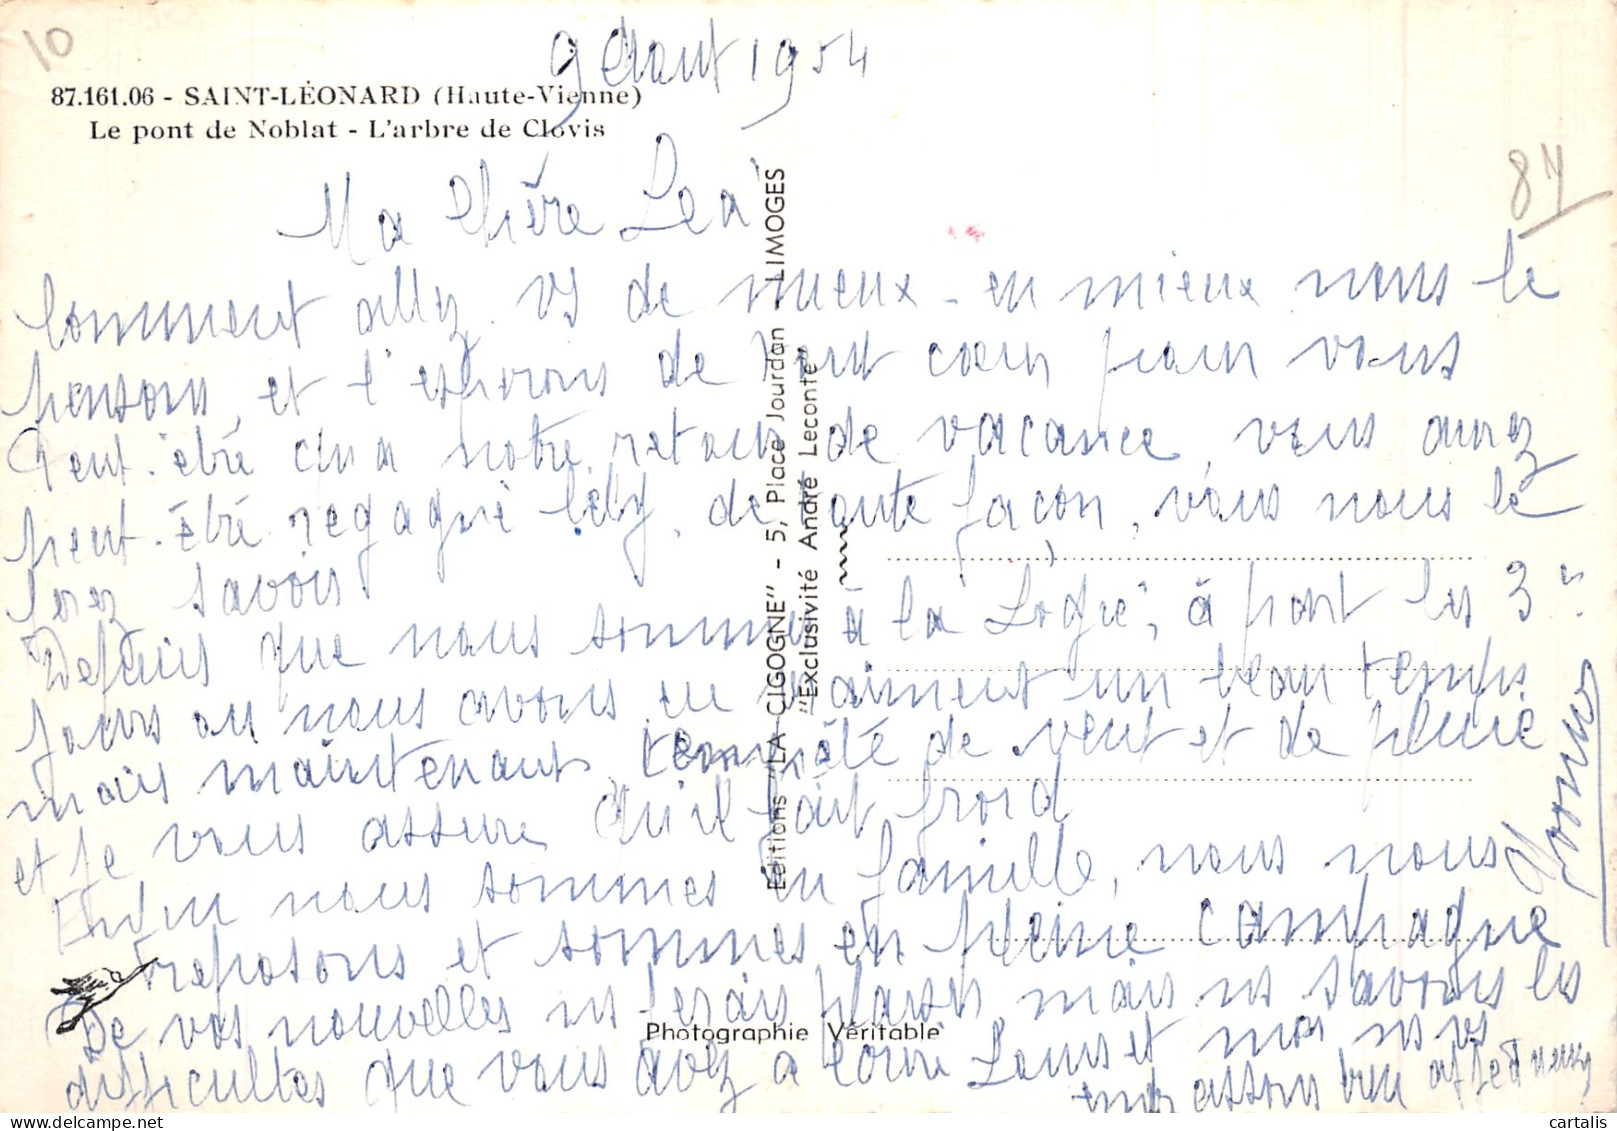 10
9 Aout 1954
87.161.06 - SAINT-LÉONARD (Haute-Vienne)
Le pont de Noblat - L'arbre de Clovis
87
Ma Chère Lea
Comment allez vs de mieux en mieux nous le
pensons et l'esperons de tout cœur pour vous
Peut-être qu'a notre retour de vacance, vous aurez
peut-être regagné de toute façon, vous nous le
ferez savoir
Depuis que nous sommes à la Logie, à part les 3 ers
jours ou nous avons eu vraiment un beau temps
mais maintenant tempête de vent et de pluie
et je vous assure qu'il fait froid
Enfin nous sommes en famille, nous nous
reposons et sommes en pleine campagne
De vos nouvelles ns ferais plaisir mais ns savons les
difficultes que vous avez a ecrire Louis et moi ns vs
embrassons bien affectueus
Editions "LA CIGOGNE" - 5, Place Jourdan - LIMOGES
"Exclusivité André Leconte"
Photographie Véritable
cartalis